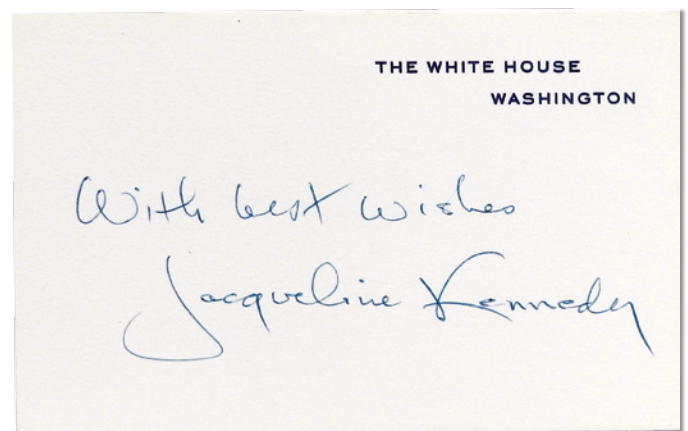 THE WHITE HOUSE
WASHINGTON
With best wishes
Jacqueline Kennedy